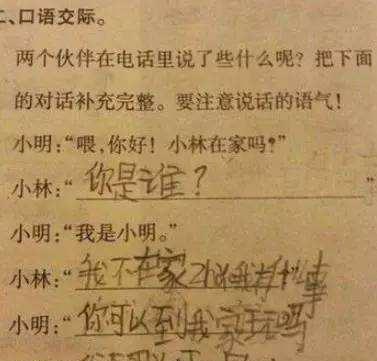 二、口语交际。
两个伙伴在电话里说了些什么呢？把下面
的对话补充完整。要注意说话的语气！
小明：“喂，你好！小林在家吗？”
小林：“你是谁？”
小明：“我是小明。”
小林：“我不在家 找我有什么事
小明：“你可以到我家玩吗